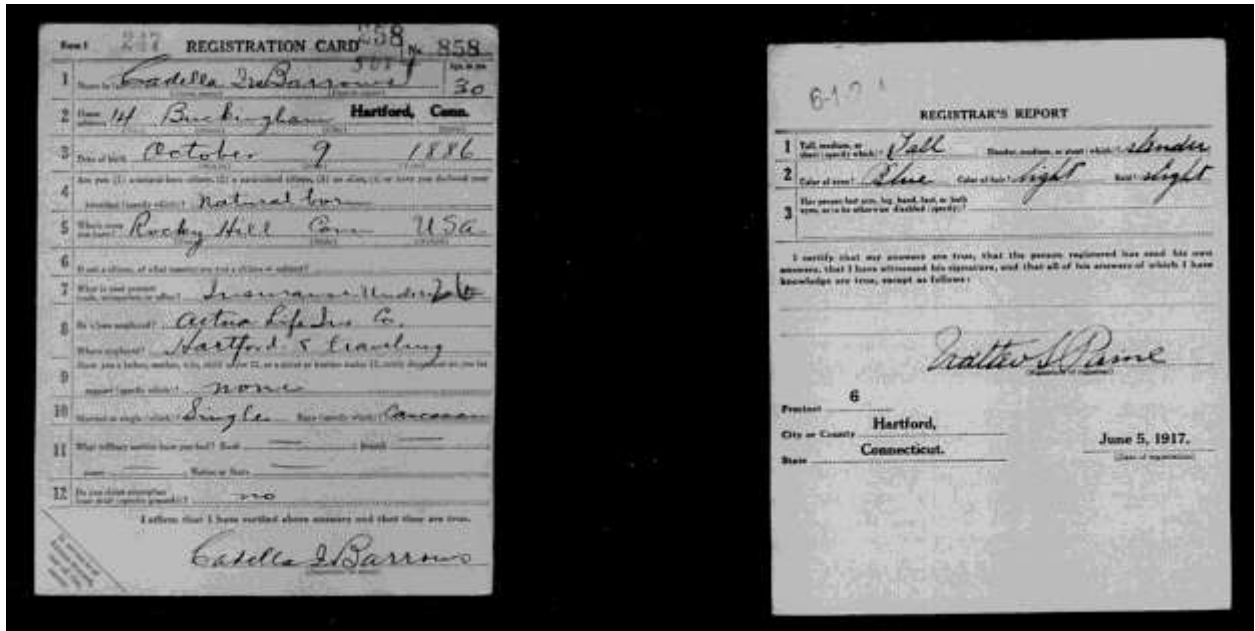 Form 1 247 REGISTRATION CARD 258 No. 858
Age, in yrs.
1 Name in full Cadella Barrows 30
(Given name) (Family name)
2 Home address 14 Buckingham Hartford, Conn.
3 Date of birth October 9 1886
4 Are you (1) a natural-born citizen, (2) a naturalized citizen, (3) an alien, (4) or have you declared your
intention (specify which)? Natural born
5 Where were you born? Rocky Hill Conn USA
6 If not a citizen, of what country are you a citizen or subject?
7 What is your present trade, occupation, or office? Insurance 26
8 By whom employed? Aetna Life Ins Co.
Where employed? Hartford & traveling
9 Have you a father, mother, wife, child under 12, or a sister or brother under 12, solely dependent on you for
support (specify which)? none
10 Married or single (which)? Single Race (specify which)? Caucasian
11 What military service have you had? Rank — ; branch —
years — ; Nation or State —
12 Do you claim exemption from draft (specify grounds)? no
I affirm that I have verified above answers and that they are true.
Cadella I Barrows
(Signature or mark)
REGISTRAR'S REPORT
1 Tall, medium, or short (specify which)? Tall Slender, medium, or stout (which)? slender
2 Color of eyes? Blue Color of hair? light Bald? slight
3 Has person lost arm, leg, hand, foot, or both eyes, or is he otherwise disabled (specify)?
I certify that my answers are true, that the person registered has read his own
answers, that I have witnessed his signature, and that all of his answers of which I have
knowledge are true, except as follows:
(Signature of registrar)
Precinct 6
City or County Hartford,
State Connecticut.
June 5, 1917.
(Date of registration)